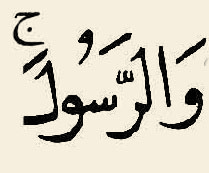 وَالرَّسُولَۚ